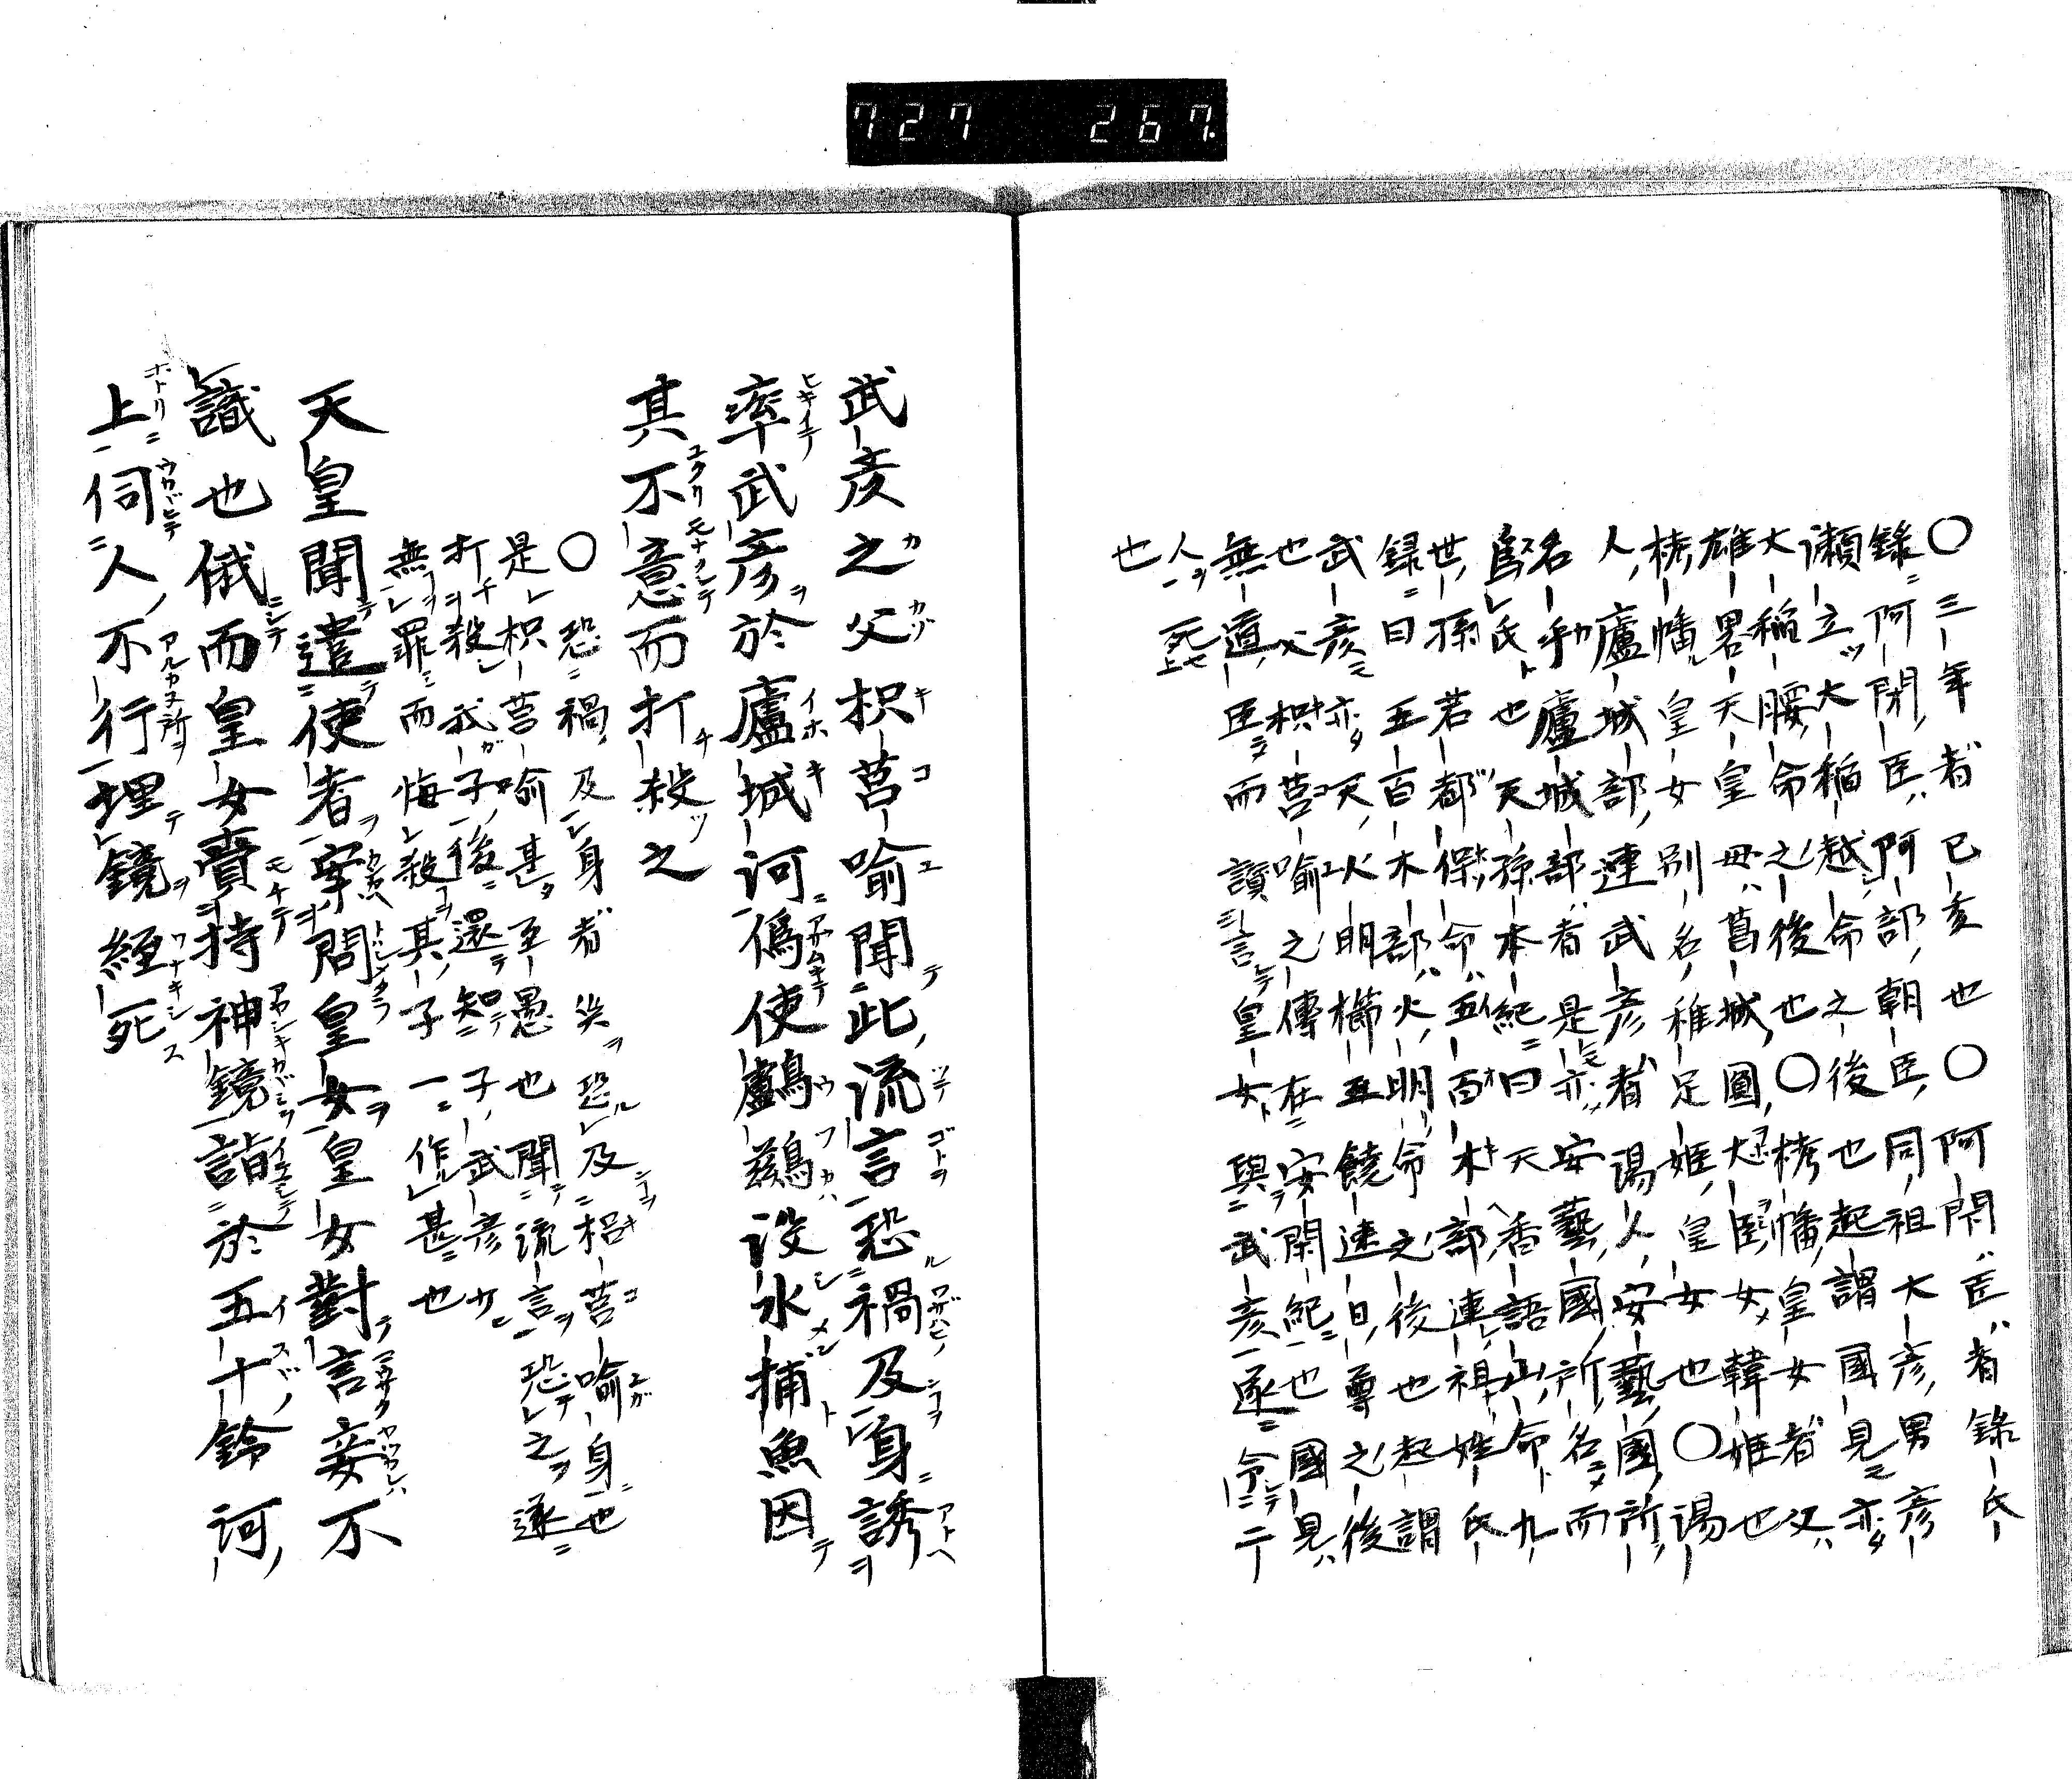 727 267.
〇三年者已亥也〇阿閇臣者錄氏
錄阿閇臣阿部朝臣同祖大彦男彦
瀬立大稲越命之後也起謂國見亦
大稲腰命之後也〇栲幡皇女者父
雄略天皇母葛城圓大臣女韓姫也
栲幡皇女別名稚足姫皇女也〇湯
人廬城部連武彦者湯人安藝國所
名手廬城部者是亦安藝國所名而
爲氏也天孫本紀曰天香語山命九
世孫若都保命五百木部連祖姓氏
録曰五百木部火明命之後也起謂
武彦亦天火明櫛玉饒速日尊之後
也父枳莒喩之傳在安閑紀也國見
無道臣而讃言皇女與武彦遂令二
人死
也
武彦之父枳莒喩聞此流言恐禍及身誘
率武彦於廬城河僞使鸕鷀没水捕魚因
其不意而打殺之
〇恐禍及身者災恐及枳莒喩身也
是枳莒喩甚至愚也聞流言恐之遂
打殺武子後還知子武彦
無罪而悔殺其子一作甚也
天皇聞遣使者案問皇女皇女對言妾不
識也俄而皇女賷持神鏡詣於五十鈴河
上伺人不行埋鏡經死